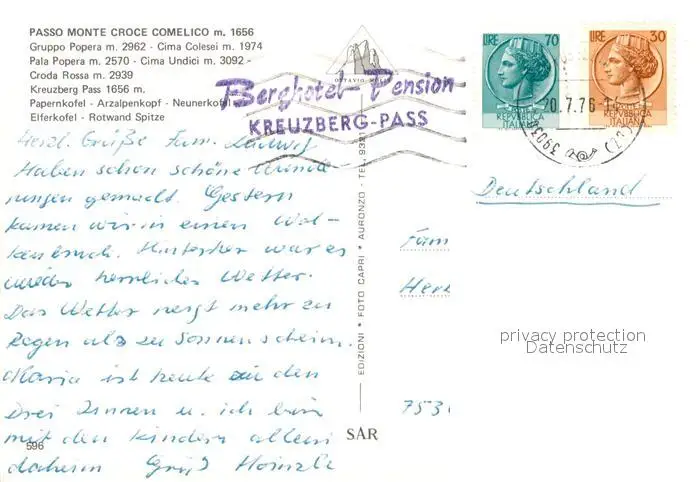 PASSO MONTE CROCE COMELICO m. 1656
Gruppo Popera m. 2962 - Cima Colesei m. 1974
Pala Popera m. 2570 - Cima Undici m. 3092 -
Croda Rossa m. 2939
Kreuzberg Pass 1656 m.
Papernkofel - Arzalpenkopf - Neunerkofel -
Elferkofel - Rotwand Spitze
Berghotel-Pension
KREUZBERG-PASS
Herzl. Grüße Fam. Ludwig
Haben schon schöne Wande-
rungen gemacht. Gestern
kamen wir in einen Wol-
kenbruch. Hinterher war es
wieder herrliches Wetter.
Das Wetter neigt mehr zu
Regen als zu Sonnenschein.
Maria ist heute zu den
Drei Zinnen u. ich bin
mit den Kindern allein
daheim Gruß
596
EDIZIONI * FOTO CAPRI * AURONZO - TEL. 93
SAR
LIRE 70
REPVBBLICA
ITALIANA
LIRE 30
REPVBBLICA
ITALIANA
20.7.76
3903
Deutschland
Fam
Her
753
privacy protection
Datenschutz